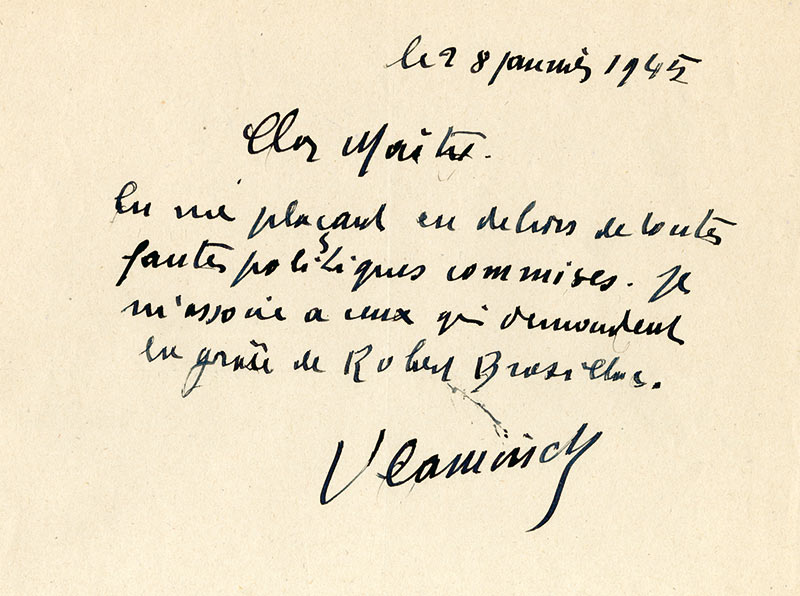 le 28 janvier 1945
Cher Maître.
En me plaçant en dehors de toutes
fautes politiques commises. je
m'associe a ceux qui demandent
la grâce de Robert Brasillac.
Vlaminck